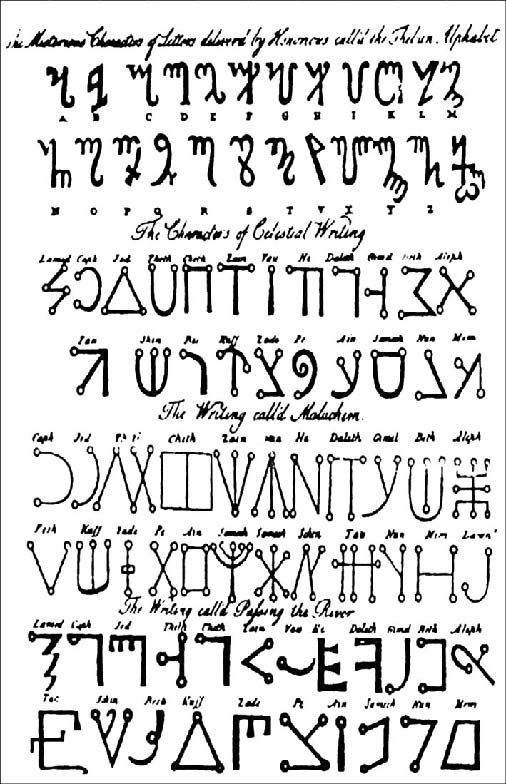 Characters of Letters deliverd by Honorous call'd the Theban Alphabet
A B C D E F G H I K L M
N O P Q R S T V X Y Z
The Characters of Celestial Writing
Lamed Caph Jod Theth Cheth Zain Vau He Daleth Gimel Beth Aleph
Tau Shin Res Kuff Zade Pe Ain Samech Nun Mem
The Writing call'd Malachim.
Caph Jod Cheth Zain Vau He Daleth Gimel Beth Aleph
Resh Kuff Zade Pe Ain Samech Samech Schin Tau Nun Mem
The Writing call'd Passing the River
Lamed Caph Jod Theth Zain Vau He Daleth Gimel Beth Aleph
Schin Resh Kuff Zade Pe Ain Samech Nun Mem